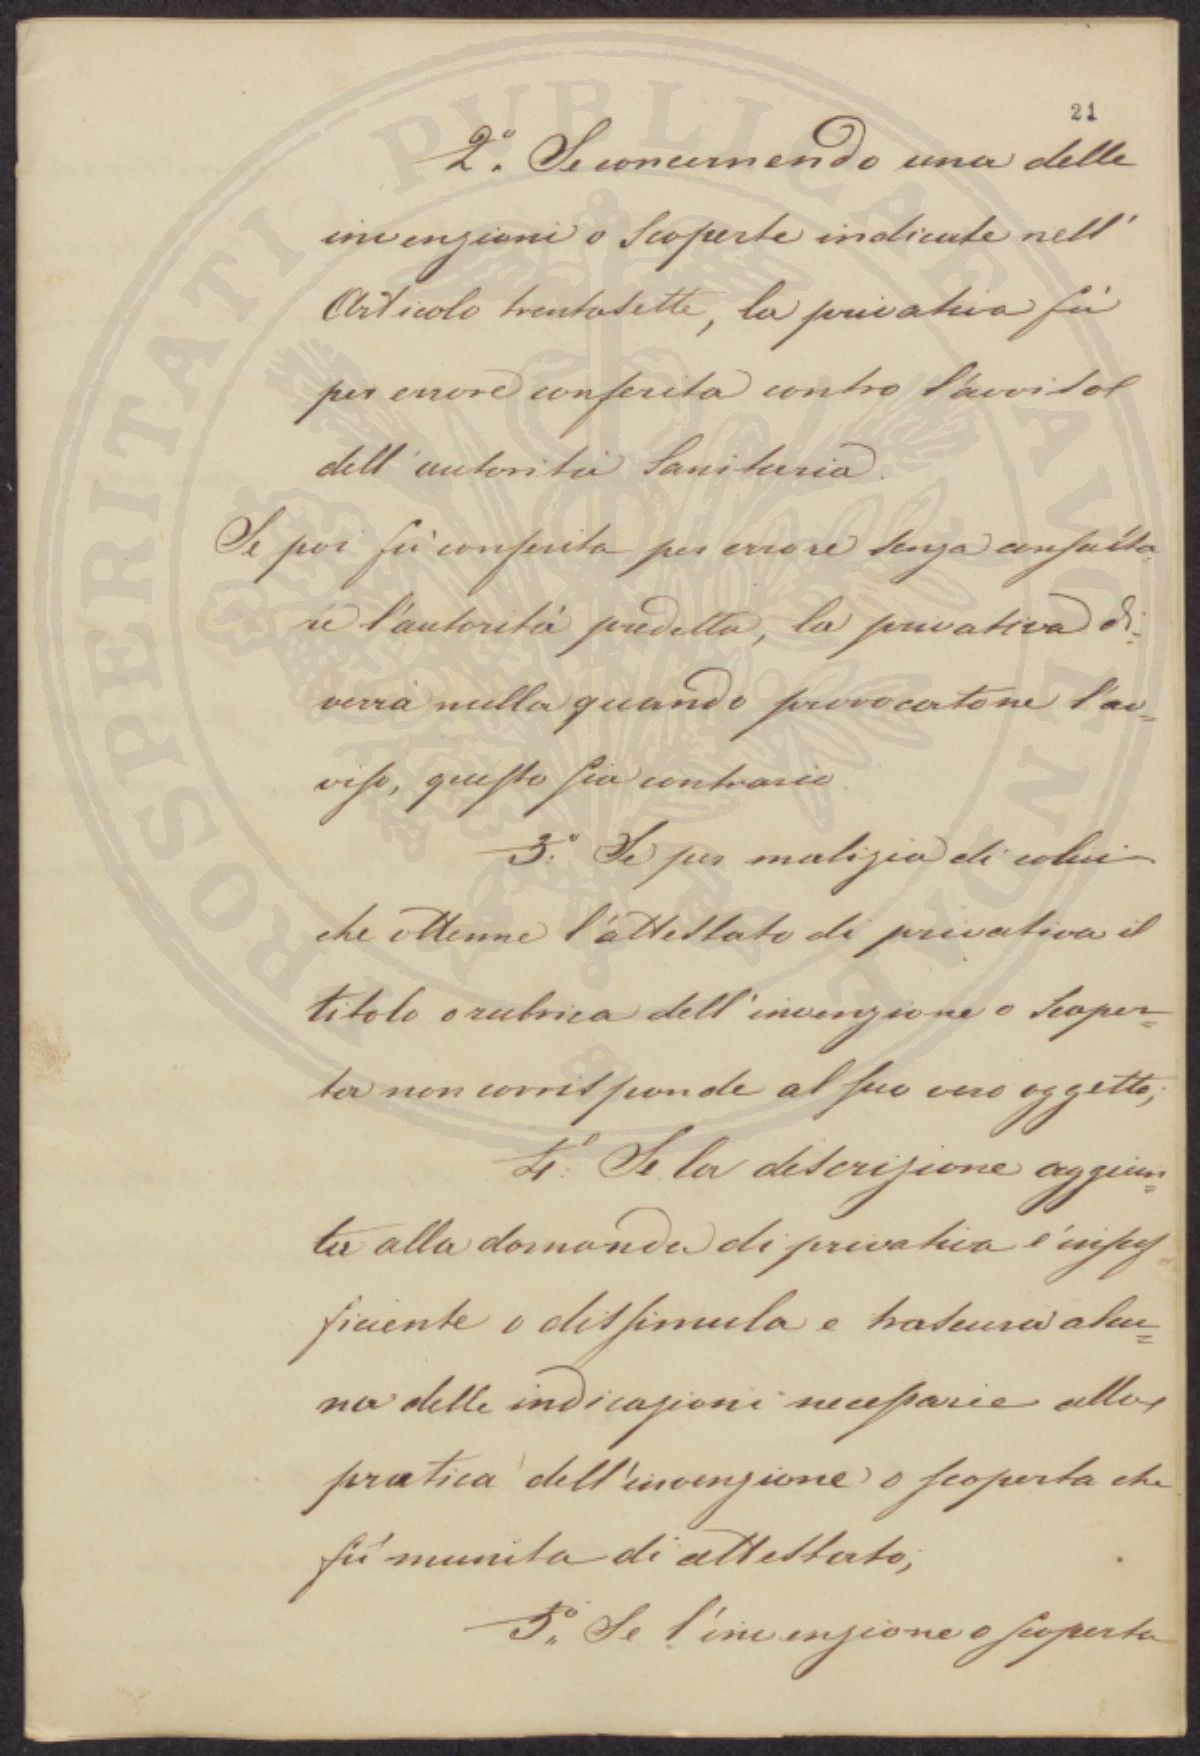 21
2.° Se concernendo una delle
invenzioni o Scoperte indicate nell'
Articolo trentasette, la privativa fù
per errore conferita contro l'avviso
dell'autorità Sanitaria.
Se poi fù conferita per errore senza consulta-
re l'autorità predetta, la privativa di-
verrà nulla quando provocatone l'av=
viso, questo sia contrario.
3.° Se per malizia di colui
che ottenne l'attestato di privativa il
titolo o rubrica dell'invenzione o Scoper=
ta non corrisponde al suo vero oggetto;
4.° Se la descrizione aggiun=
ta alla domanda di privativa è insuf=
ficiente o dissimula e trascura alcu=
na delle indicazioni necessarie alla
pratica dell'invenzione o scoperta che
fù munita di attestato;
5.° Se l'invenzione o scoperta
PROSPERITATI PUBLICAE AVGENDAE